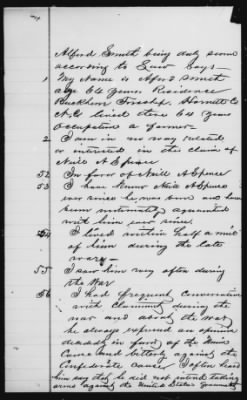 Alfred Smith being duly sworn
according to Law says—
1 My Name is Alfred Smith
age 64 years Residence
Buckhorn Township Harnett Co
N.C. lived there 64 years
Occupation a farmer—
2 I am in no way related
or interested in the claim of
Neill A Spence
52 In favor of Neill A Spence
53 I have Known Neill A Spence
ever since he was born and have
been intimately aquanted
with him ever since
54 I lived within half a mile
of him during the late
war—
55 I saw him very often during
the War
56 I had frequent Conversation
with Claimant during the
war and about the War,
he always expressed an opinion
decidedly in favor of the Union
Cause and bitterly against the
Confederate Cause I often heard
him say that he did not intend taking
arms against the United States Government